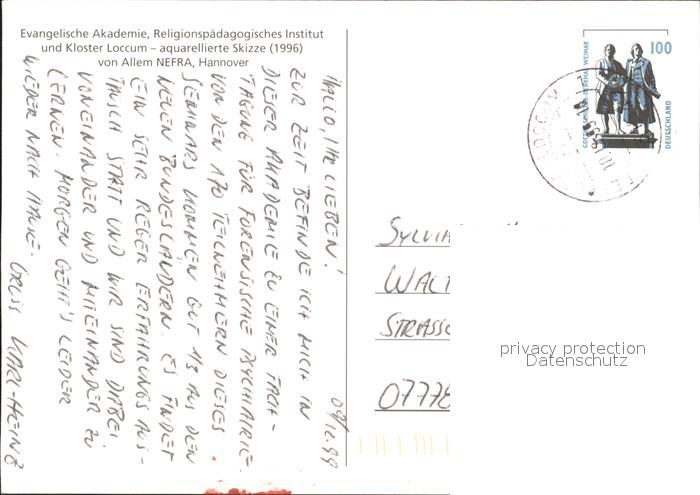 Evangelische Akademie, Religionspädagogisches Institut
und Kloster Loccum – aquarellierte Skizze (1996)
von Allem NEFRA, Hannover
09/12.99
HALLO, IHR LIEBEN!
ZUR ZEIT BEFINDE ICH MICH IN
DIESER AKADEMIE ZU EINER FACH-
TAGUNG FÜR FORENSISCHE PSYCHIATRIE.
VON DEN 170 TEILNEHMERN DIESES
SEMINARS KOMMEN GUT 1/3 AUS DEN
NEUEN BUNDESLÄNDERN. ES FINDET
EIN SEHR REGER ERFAHRUNGSAUS-
TAUSCH STATT UND WIR SIND DABEI
VONEINANDER UND MITEINANDER ZU
LERNEN. MORGEN GEHT'S LEIDER
WIEDER NACH HAUSE. GRUSS KARL-HEINZ
100
DEUTSCHLAND
GOETHE-SCHILLER-DENKMAL WEIMAR
LOCCUM
SYLVIA
WALT
STRASSE
07778
privacy protection
Datenschutz